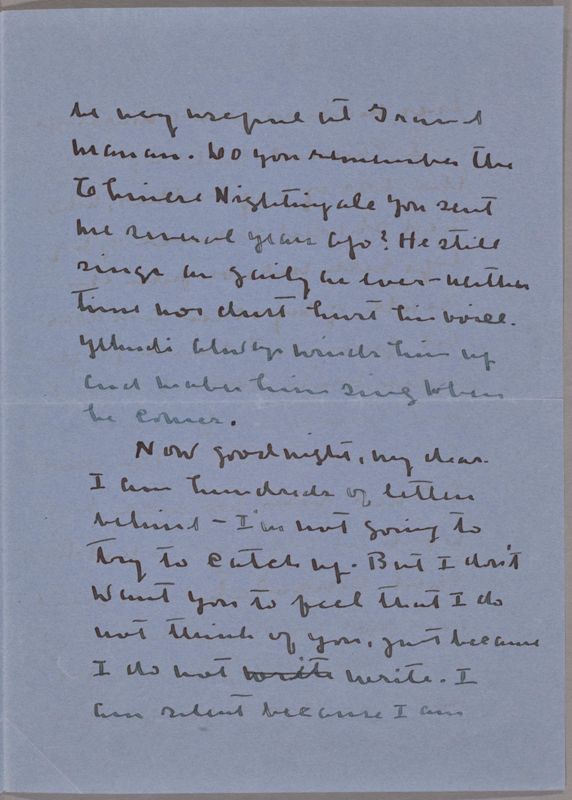 be very useful at Grand
Manan. Do you remember the
Chinese Nightingale you sent
me several years ago? He still
sings as gaily as ever - neither
time nor dust hurt his voice.
Yehudi always winds him up
and makes him sing when
he comes.
Now goodnight, my dear.
I am hundreds of letters
behind - I'm not going to
try to catch up. But I don't
want you to feel that I do
not think of you, just because
I do not write write. I
am silent because I am